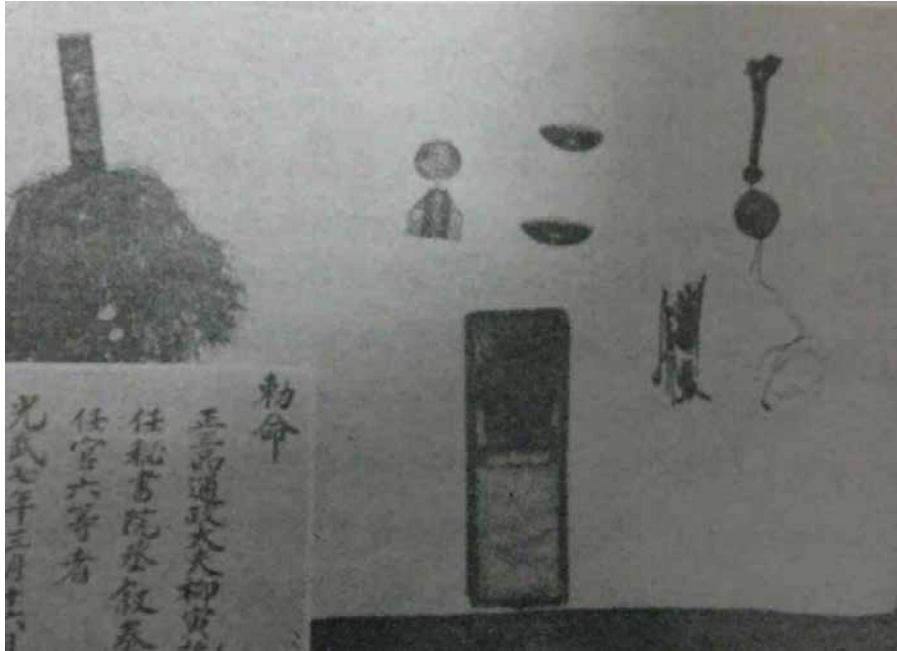 勅命
正三品通政大夫柳寅
任秘書院丞叙奏
任官六等者
光武七年三月十六日